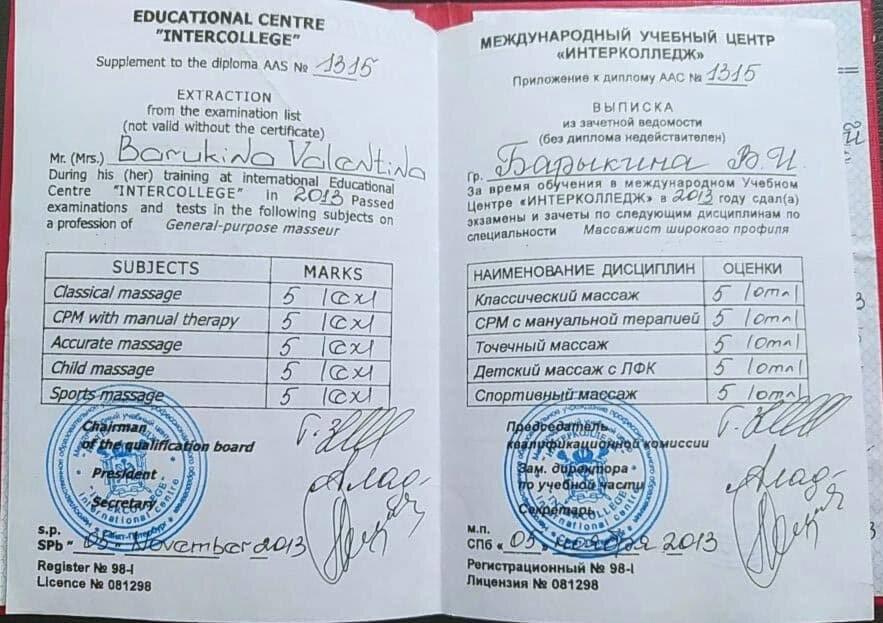 EDUCATIONAL CENTRE
"INTERCOLLEGE"
Supplement to the diploma AAS № 1315
EXTRACTION
from the examination list
(not valid without the certificate)
Mr. (Mrs.) Barukina Valentina
During his (her) training at international Educational
Centre "INTERCOLLEGE" in 2013 Passed
examinations and tests in the following subjects on
a profession of General-purpose masseur
SUBJECTS MARKS
Classical massage 5 (ex)
CPM with manual therapy 5 (ex)
Accurate massage 5 (ex)
Child massage 5 (ex)
Sports massage 5 (ex)
Chairman
of the qualification board
President
Secretary
s.p.
SPb "05" November 2013
Register № 98-I
Licence № 081298
МЕЖДУНАРОДНЫЙ УЧЕБНЫЙ ЦЕНТР
«ИНТЕРКОЛЛЕДЖ»
Приложение к диплому ААС № 1315
ВЫПИСКА
из зачетной ведомости
(без диплома недействителен)
Гр. Барыкина В.И.
За время обучения в международном Учебном
Центре «ИНТЕРКОЛЛЕДЖ» в 2013 году сдал(а)
экзамены и зачеты по следующим дисциплинам по
специальности Массажист широкого профиля
НАИМЕНОВАНИЕ ДИСЦИПЛИН ОЦЕНКИ
Классический массаж 5 (отл)
СРМ с мануальной терапией 5 (отл)
Точечный массаж 5 (отл)
Детский массаж с ЛФК 5 (отл)
Спортивный массаж 5 (отл)
Председатель
квалификационной комиссии
Зам. директора
по учебной части
Секретарь
м.п.
СПб «05» ноября 2013
Регистрационный № 98-I
Лицензия № 081298